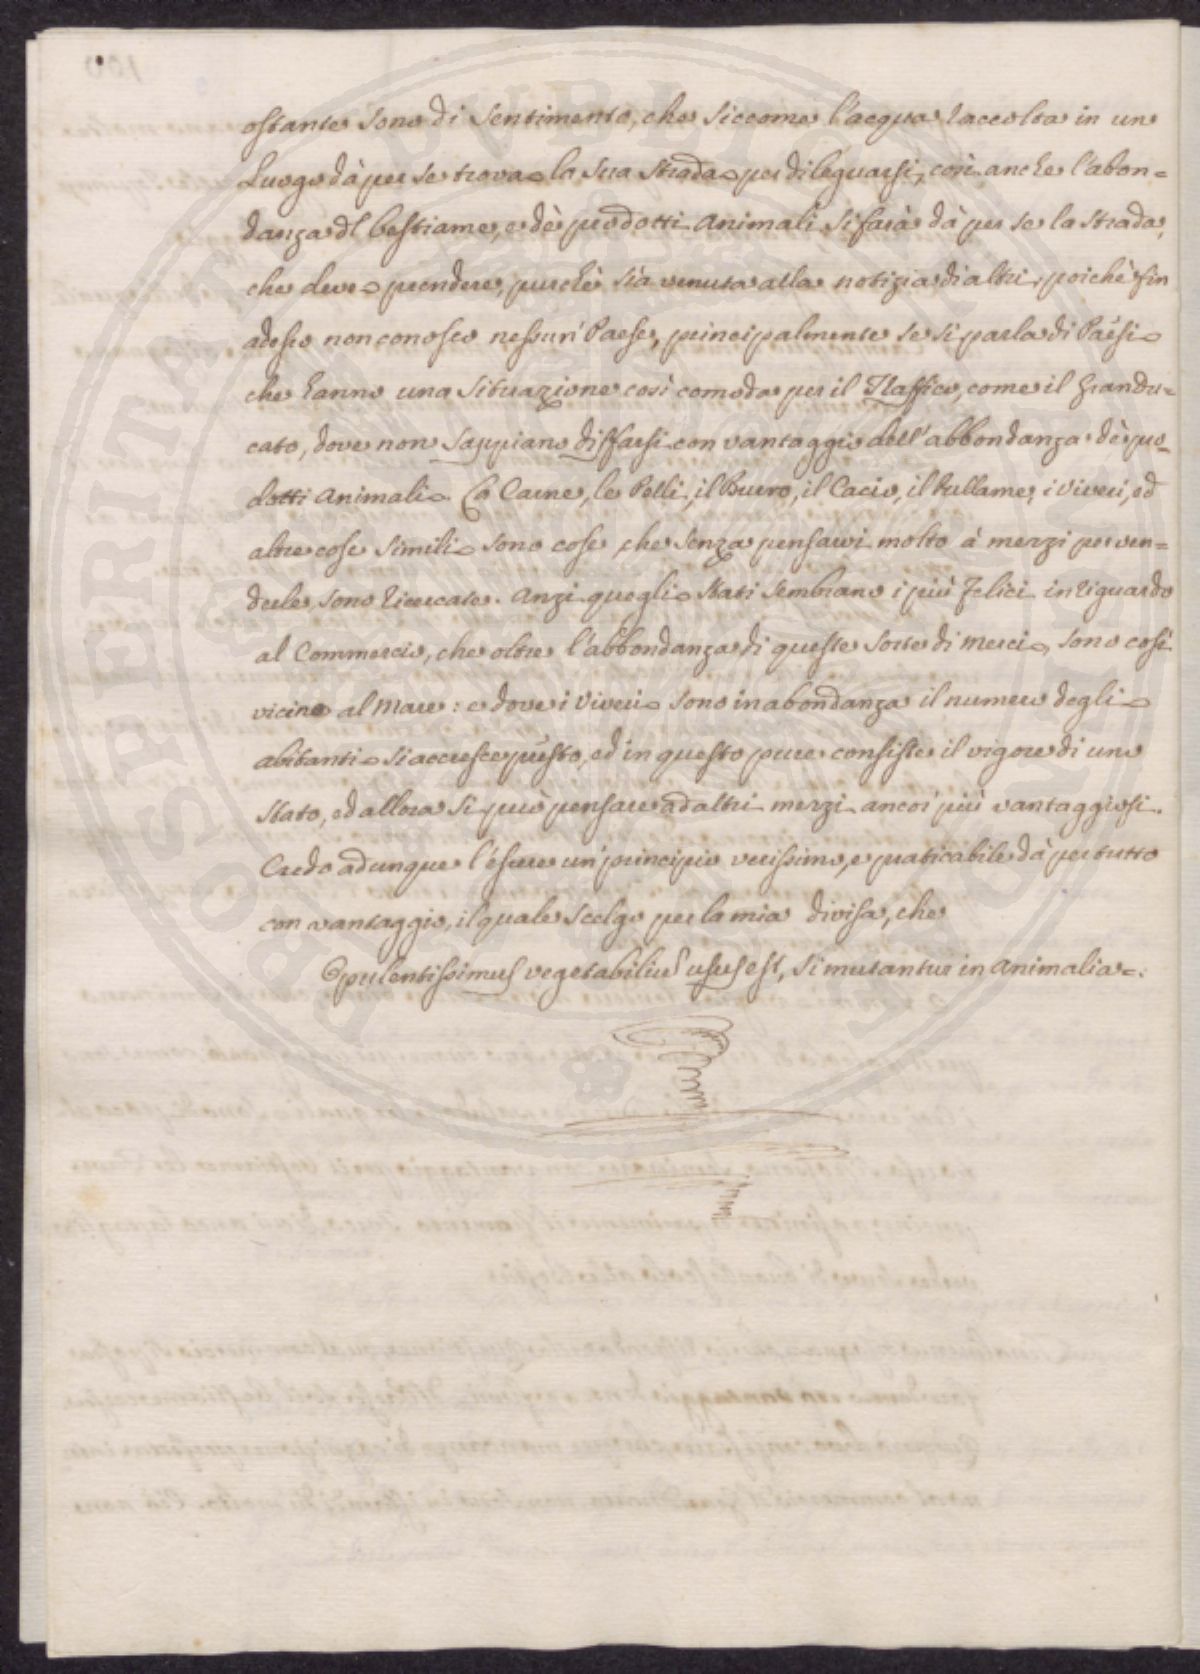 ostante sono di sentimento, che siccome l'acqua raccolta in un
Luogo dà per se trova la sua strada per dileguarsi, così anche l'abon=
danza dl bestiame, e dè prodotti animali si farà dà per se la strada,
che deve prendere, purchè sia venuta alla notizia di altri, poichè fin
adesso non conosco nessun' Paese, principalmente se si parla di Paesi
che hanno una situazione così comoda per il Traffico, come il Grandu=
cato, dove non sappiano diffarsi con vantaggio dell'abbondanza dè pro=
dotti animali. La Carne, le Pelli, il Burro, il Cacio, il Pullame, i Viveri, ed
altre cose simili sono cose che senza pensarvi molto à mezzi per ven=
derle, sono ricercate. Anzi quegli Stati sembrano i più felici in riguardo
al Commercio, che oltre l'abbondanza di queste sorte di merci, sono così
vicino al Mare: e dove i Viveri sono in abondanza il numero degli
abitanti si accresce presto, ed in questo pure consiste il vigore di uno
Stato, ed allora si può pensare ad altri mezzi ancor' più vantaggiosi.
Credo adunque l'essere un' principio verissimo, e praticabile dà per tutto
con vantaggio, il quale scelgo per la mia divisa, che
Opulentissimus vegetabilium usus est, si mutantur in animalia.
PROSPERITATI PVBLICAE